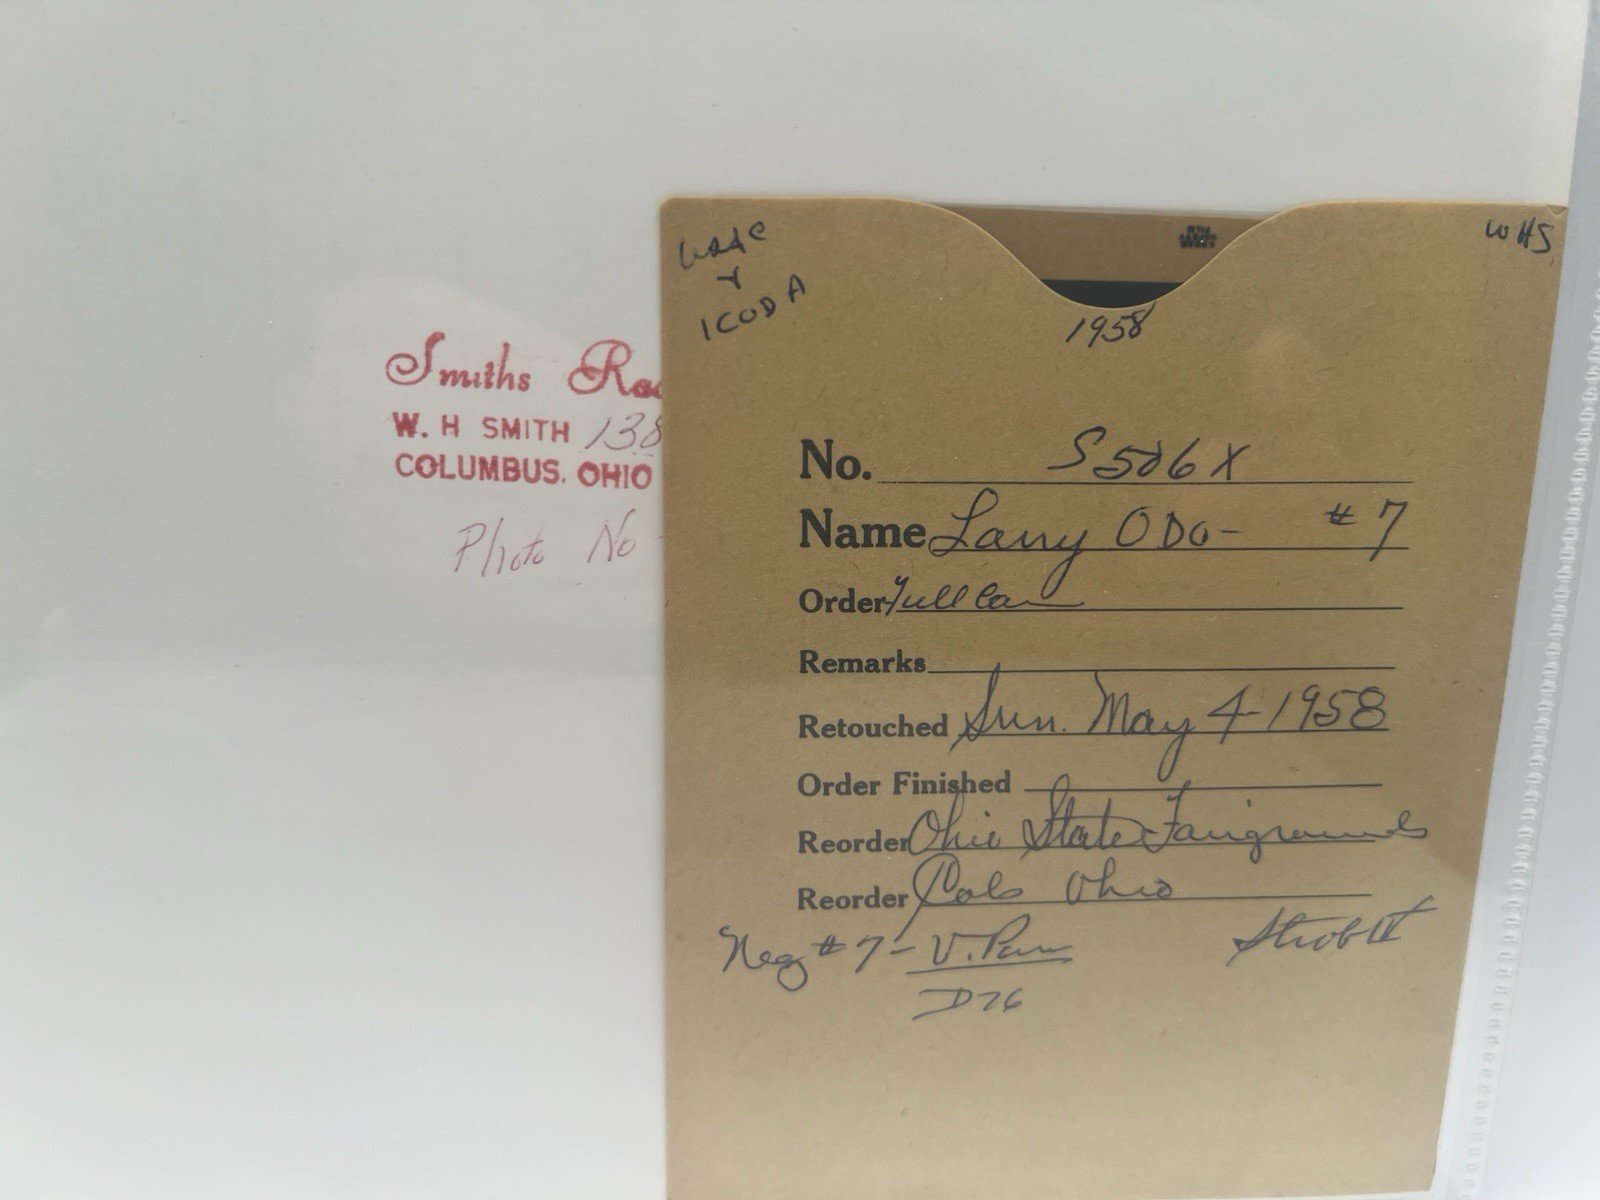 Smiths
W. H SMITH 138
COLUMBUS. OHIO
Photo No
ICODA
WHS
1958
No. S506X
Name Larry ODo- #7
Order Full Car
Remarks
Retouched Sun. May 4-1958
Order Finished
Reorder Ohio State Fairgrounds
Reorder Cols Ohio
Neg #7- V. Pan
D76